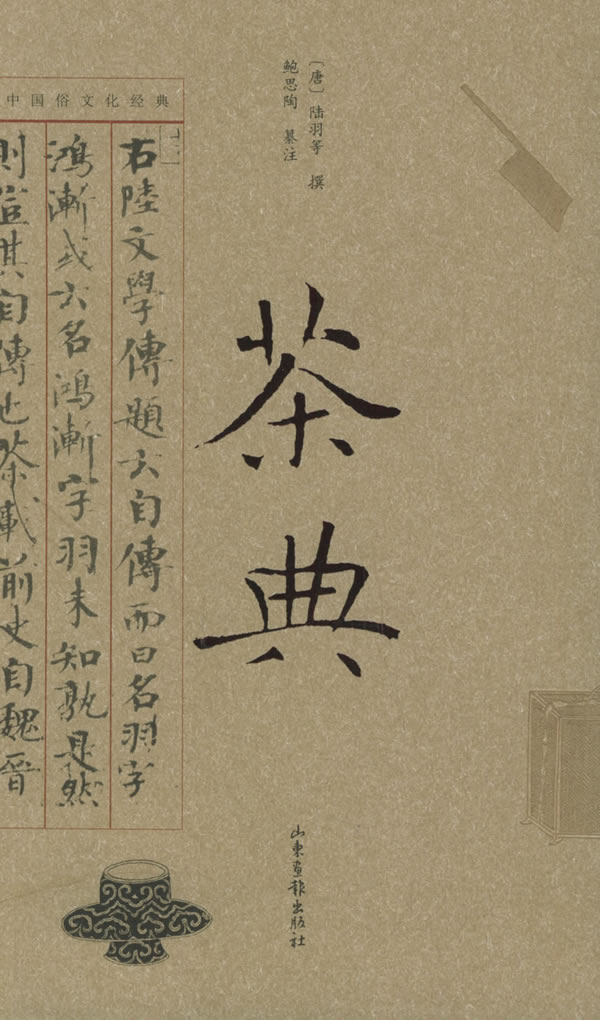 〔唐〕陆羽等 撰
鲍思陶 纂注
茶典
中国俗文化经典
右陸文學傳題云自傳而曰名羽字
鴻漸或云名鴻漸字羽未知孰是然
則豈其自傳也茶載前史自魏晉
山東畫報出版社